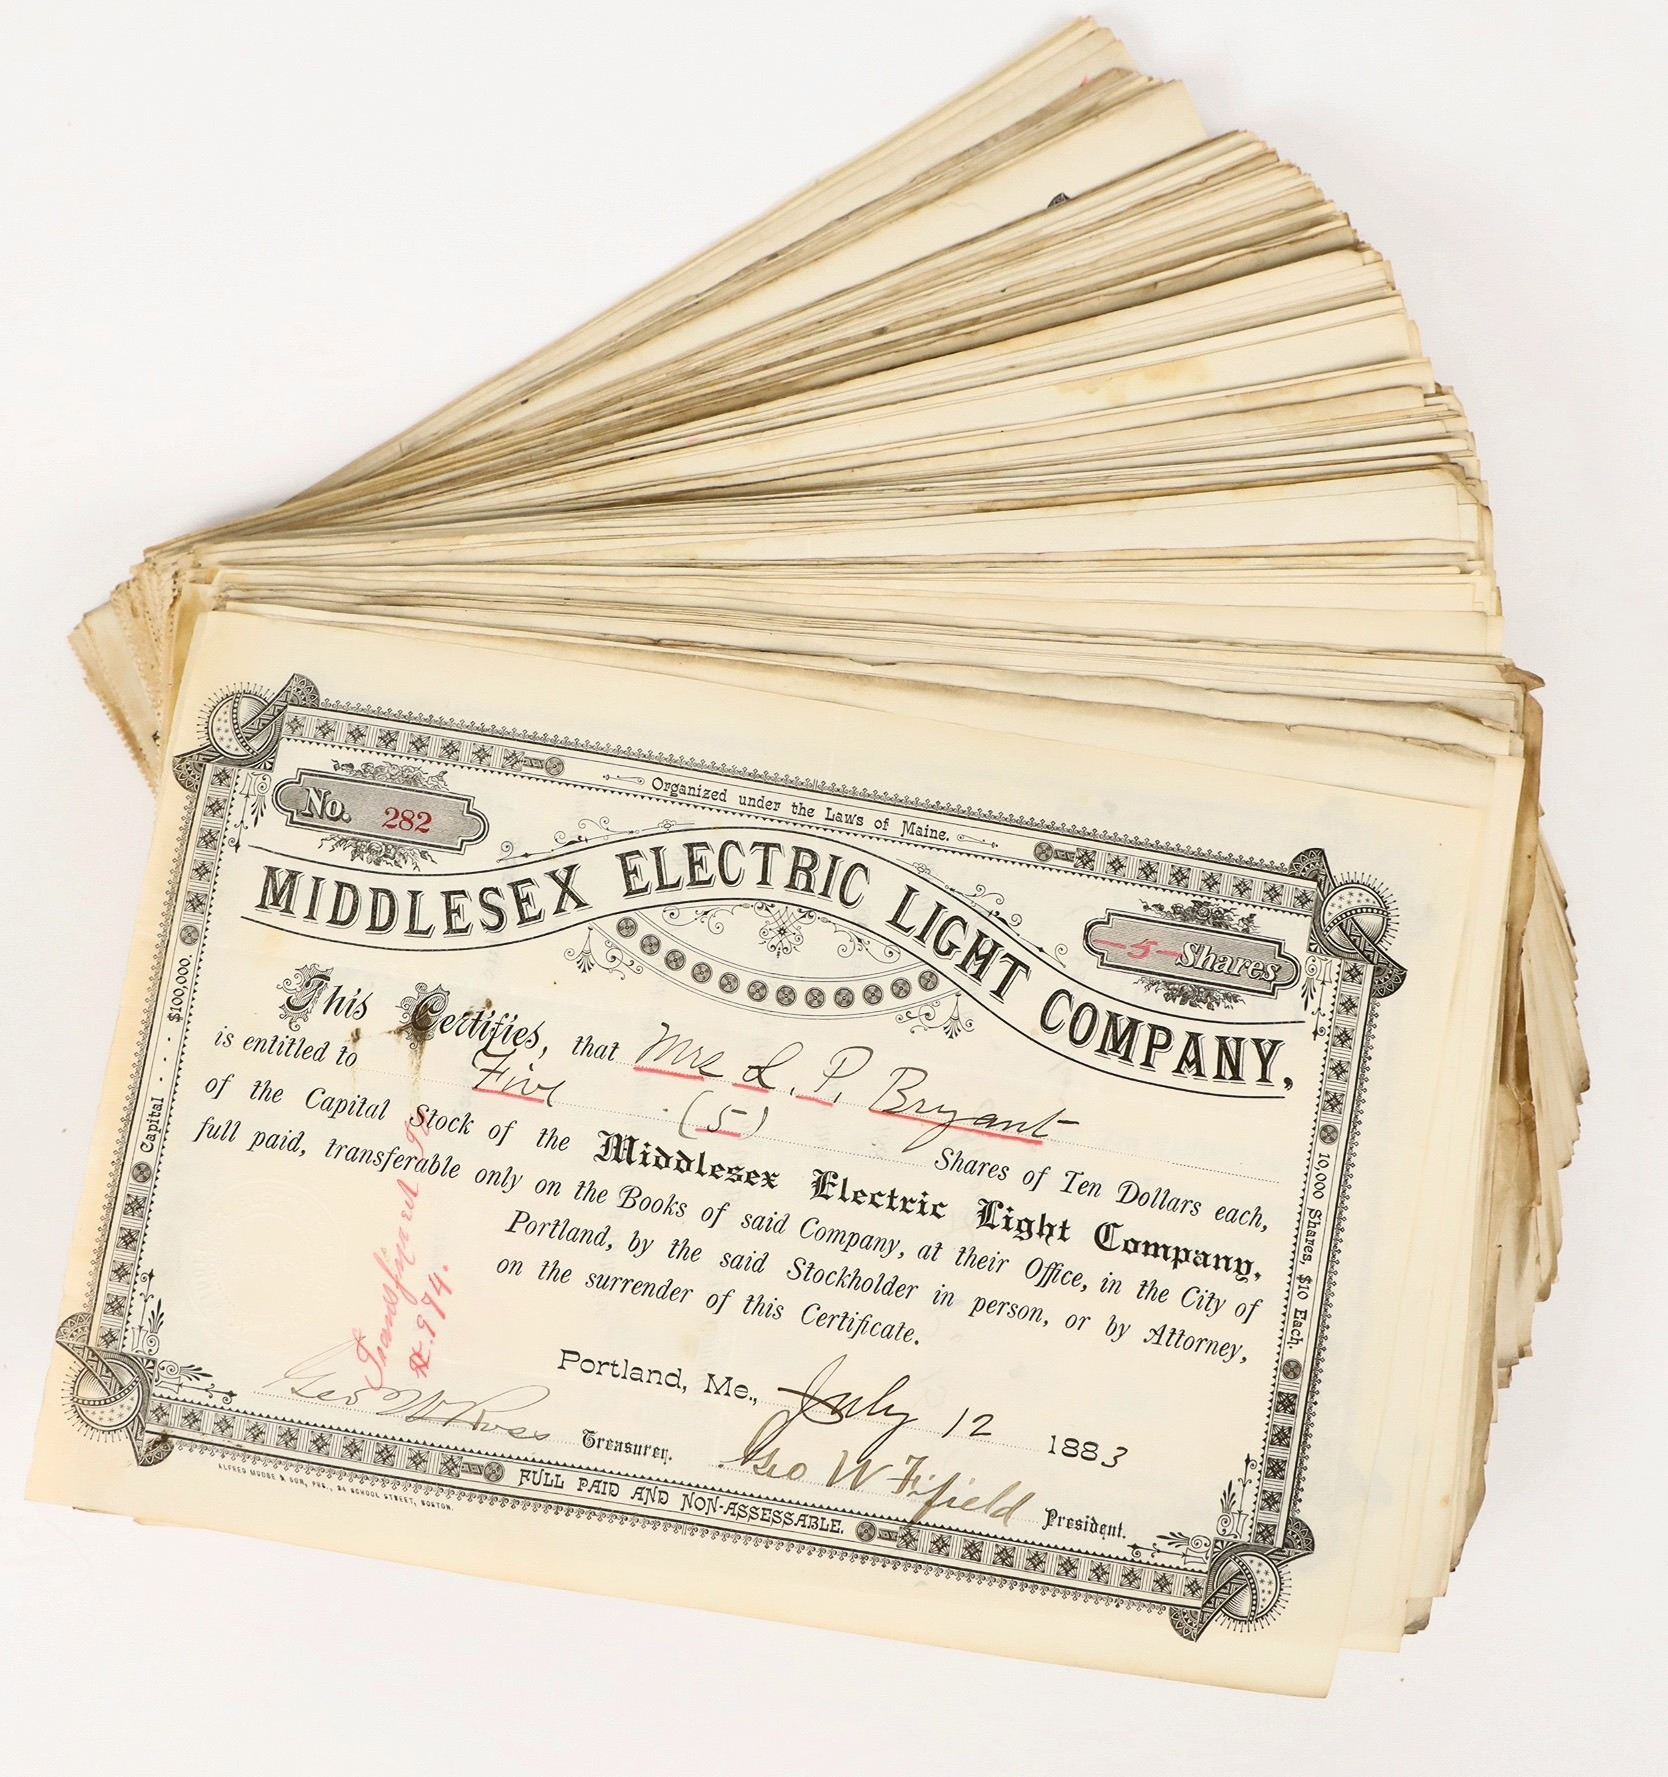 Organized under the Laws of Maine.
No. 282
MIDDLESEX ELECTRIC LIGHT COMPANY,
—5— Shares
This Certifies, that Mrs L. P. Bryant
is entitled to Five (5) Shares of Ten Dollars each,
of the Capital Stock of the Middlesex Electric Light Company,
full paid, transferable only on the Books of said Company, at their Office, in the City of
Portland, by the said Stockholder in person, or by Attorney,
on the surrender of this Certificate.
Portland, Me., July 12 1883
Geo W Ross Treasurer.
Geo W Fifield President.
FULL PAID AND NON-ASSESSABLE.
ALFRED MUDGE & SON, PRS., 24 SCHOOL STREET, BOSTON.
Capital . . . $100,000.
10,000 Shares, $10 Each.